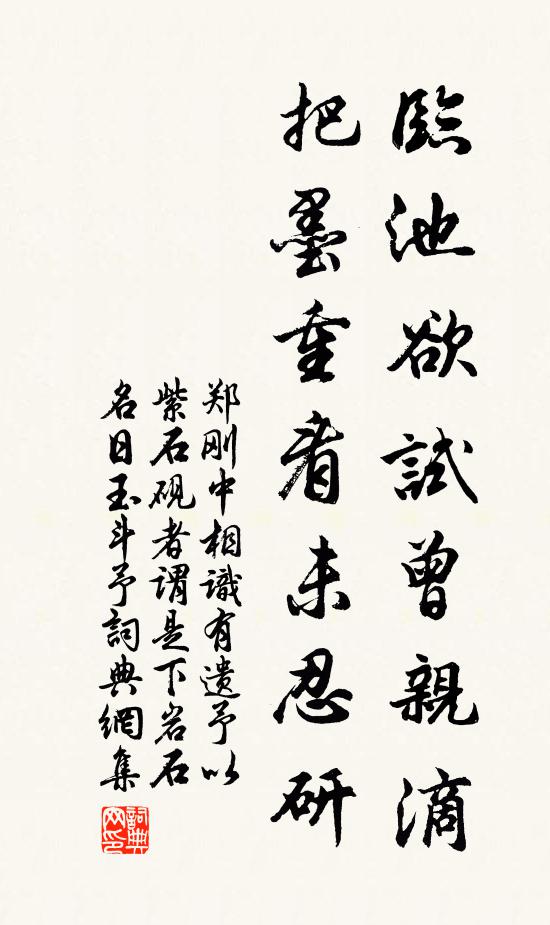 臨池欲試曾親滴
把墨重看未忍研
郑刚中相識有遗予以
紫石砚者謂是下岩石
名曰玉斗予詞典網集
詞典
网印